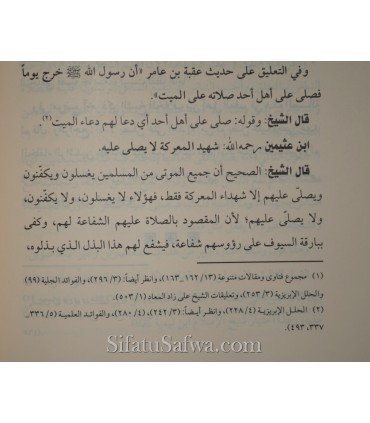 وفي التعليق على حديث عقبة بن عامر «أن رسول الله ﷺ خرج يوماً
فصلى على أهل أحد صلاته على الميت».
قال الشيخ: وقوله: صلى على أهل أحد أي دعا لهم دعاء الميت(٢)
ابن عثيمين رحمه الله: شهيد المعركة لا يصلى عليه.
قال الشيخ: الصحيح أن جميع الموتى من المسلمين يغسلون ويكفّنون
ويصلّى عليهم إلا شهداء المعركة فقط، فهؤلاء لا يغسلون، ولا يكفّنون،
ولا يصلّى عليهم؛ لأن المقصود بالصلاة عليهم الشفاعة لهم، وكفى
ببارقة السيوف على رؤوسهم شفاعة، فيشفع لهم هذا البذل الذي بذلوه،
(١) مجموع فتاوى ومقالات متنوعة (١٣/ ١٦٢ـ١٦٣)، وانظر أيضاً: (٣/ ٢٩٦)، والفوائد الجلية (٩٩)
والحلل الإبريزية (٣/ ٢٥٣)، وتعليقات الشيخ على زاد المعاد (١/ ٥٠٣).
(٢) الحلل الإبريزية (٤/ ٢٢٨)، وانظر أيضاً: (٣/ ٢٤٢)، (٤/ ٢٨٠)، والفوائد العلمية (٥/ ٣٣٦ـ
٣٣٧، ٤٩٣).
SifatuSafwa.com